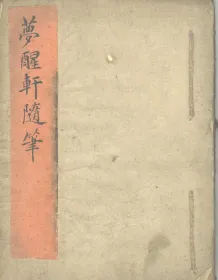 夢醒軒隨筆